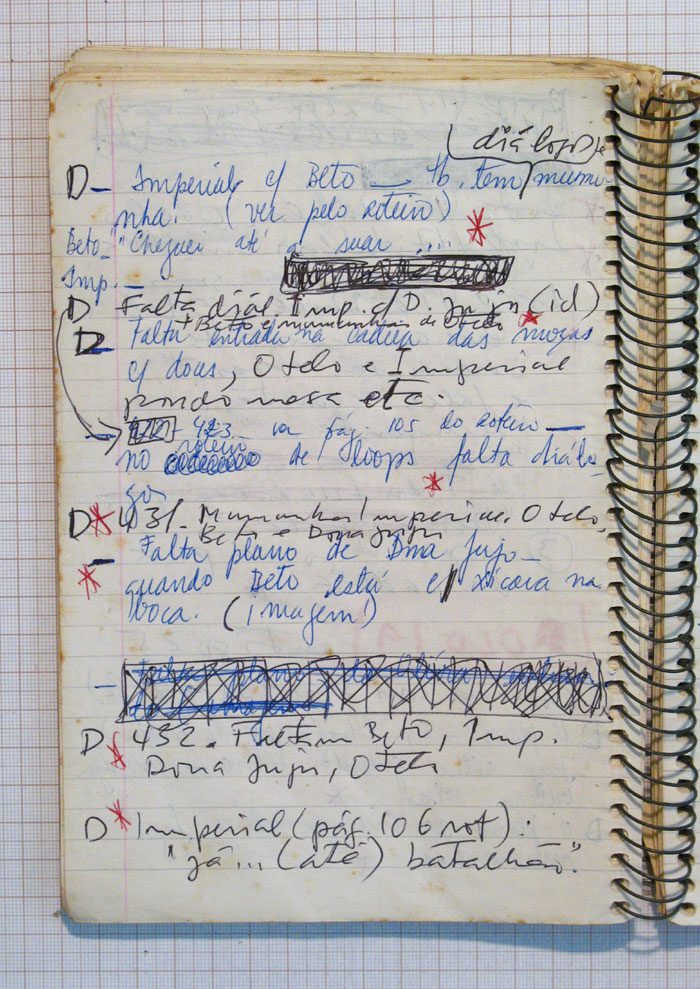 diálogos
D — Imperial c/ Beto — tb. tem mumu-
nha. (ver pelo roteiro)
Beto — "Cheguei até a suar ....
Imp. —
D Falta diál. Imp. c/ D. Jujú (id)
+ Beto e mumunhas de Otelo
D — Falta entrada na cadeia das moças
c/ doces, Otelo e Imperial
pondo mesa etc.
— 423 ver pág. 105 do roteiro —
roteiro
no de loops falta diálo-
gos
D 431. Mumunhas Imperial, Otelo,
Beto e Dona Jujú
— Falta plano de Dna Jujo —
quando Beto está c/ xícara na
boca. (imagem)
D 432. Faltam Beto, Imp.
Dona Jujú, Otelo
D Imperial (pág. 106 rot):
"já... (até) batalhão".